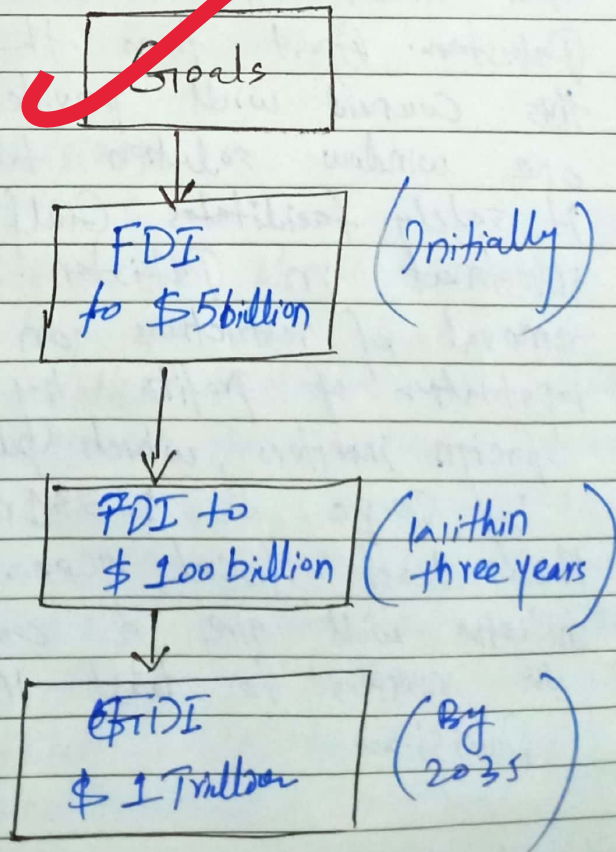 Goals
FDI
to $ 5 billion
(Initially)
FDI to
$ 100 billion
(Within
three years)
$ 1 Trillion
(By
2035)